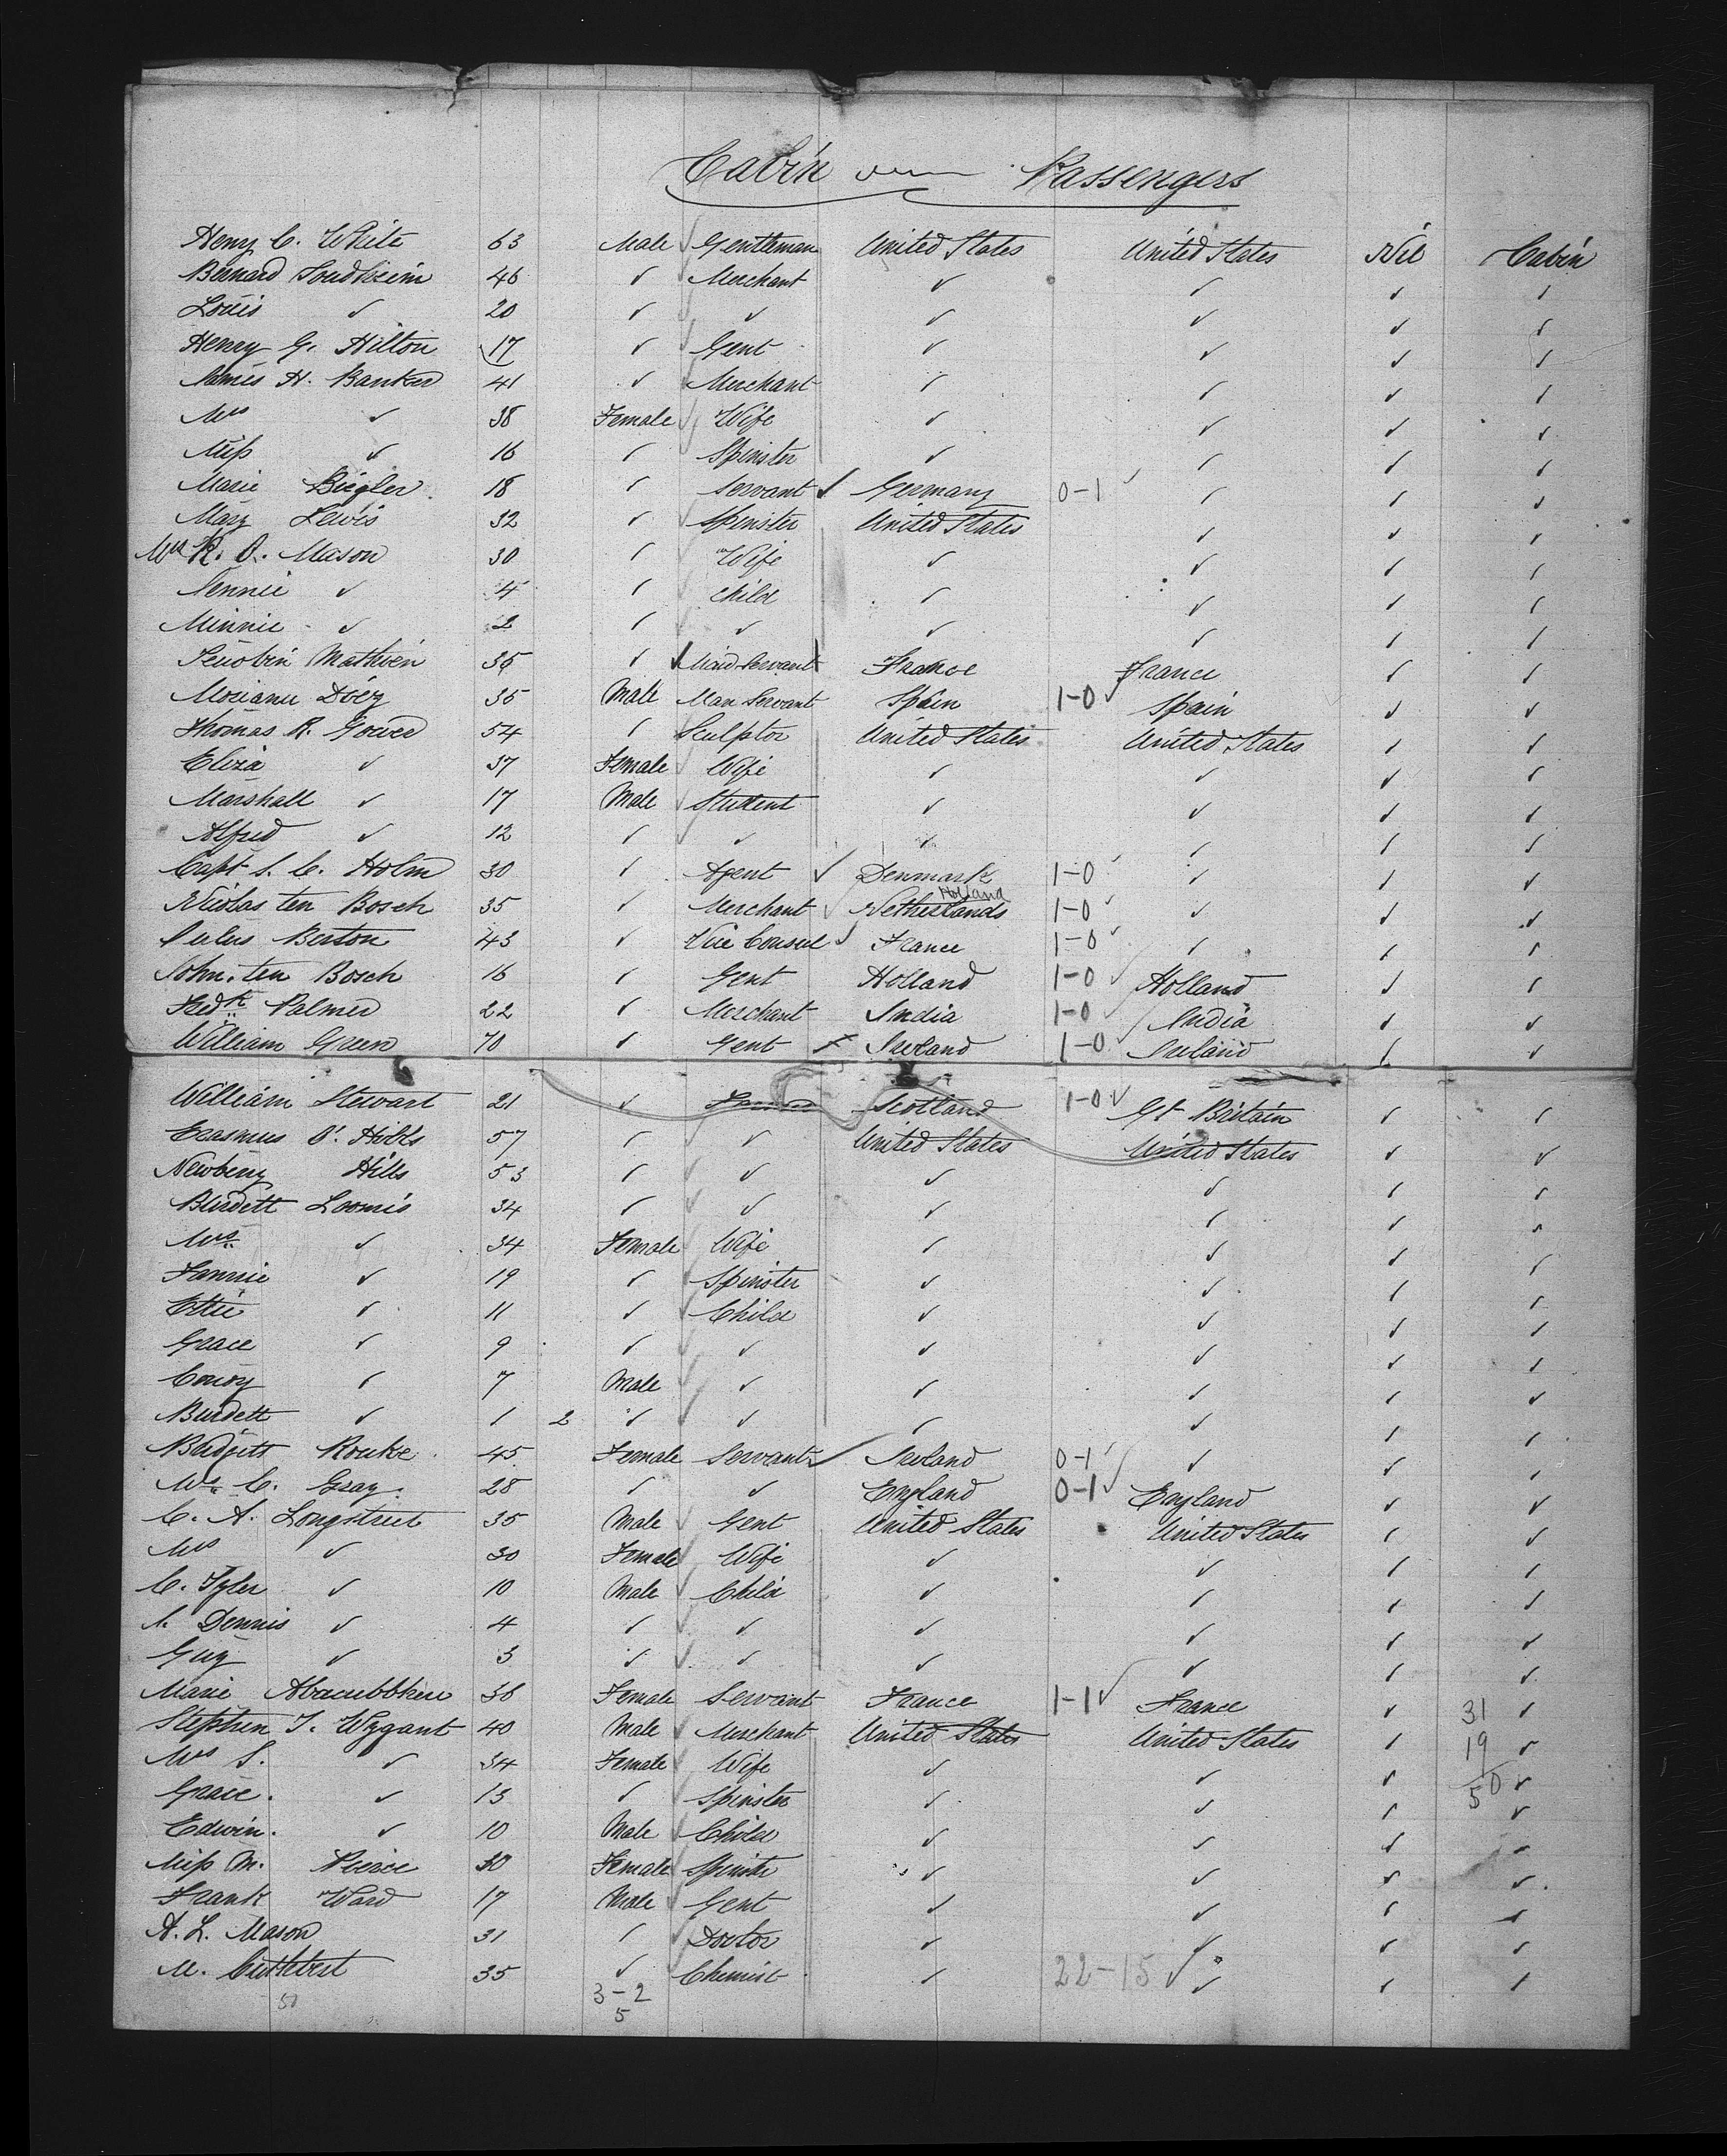 Cabin Passengers
Henry C. White 63 Male Gentleman United States United States Nil Cabin
Bernard Sondheim 46 ✓ Merchant ✓ ✓ ✓ ✓
Louis ✓ 20 ✓ ✓ ✓ ✓ ✓ ✓
Henry G. Hilton 17 ✓ Gent ✓ ✓ ✓ ✓
James H. Banker 41 ✓ Merchant ✓ ✓ ✓ ✓
Mrs ✓ 38 Female Wife ✓ ✓ ✓ ✓
Miss ✓ 16 ✓ Spinster ✓ ✓ ✓ ✓
Marie Biegler 18 ✓ Servant Germany 0-1 ✓ ✓ ✓
Mary Lewis 32 ✓ Spinster United States ✓ ✓ ✓
Mrs R. O. Mason 30 ✓ Wife ✓ ✓ ✓ ✓
Jennie ✓ 4 ✓ Child ✓ ✓ ✓ ✓
Minnie ✓ 2 ✓ ✓ ✓ ✓ ✓ ✓
Mathieu 35 ✓ Maid Servant France France ✓ ✓
35 Male Man Servant Spain 1-0 Spain ✓ ✓
Thomas R. Gould 54 ✓ Sculptor United States United States ✓ ✓
Eliza ✓ 37 Female Wife ✓ ✓ ✓ ✓
Marshall ✓ 17 Male Student ✓ ✓ ✓ ✓
Alfred ✓ 12 ✓ ✓ ✓ ✓ ✓ ✓
Capt S. C. Holm 30 ✓ Agent Denmark 1-0 ✓ ✓ ✓
Nicolas ten Bosch 35 ✓ Merchant Netherlands Holland 1-0 ✓ ✓ ✓
Jules Berton 43 ✓ Vice Consul France 1-0 ✓ ✓ ✓
John ten Bosch 16 ✓ Gent Holland 1-0 Holland ✓ ✓
Fredk Palmer 22 ✓ Merchant India 1-0 India ✓ ✓
William Green 70 ✓ Gent Ireland 1-0 Ireland ✓ ✓
William Stewart 21 ✓ Scotland 1-0 Gt Britain ✓ ✓
Erasmus O. Hills 57 ✓ ✓ United States United States ✓ ✓
Newbery Hills 53 ✓ ✓ ✓ ✓ ✓ ✓
Burdett Loomis 34 ✓ ✓ ✓ ✓ ✓ ✓
Mrs ✓ 34 Female Wife ✓ ✓ ✓ ✓
Fannie ✓ 19 ✓ Spinster ✓ ✓ ✓ ✓
Ettie ✓ 11 ✓ Child ✓ ✓ ✓ ✓
Grace ✓ 9 ✓ ✓ ✓ ✓ ✓ ✓
✓ 7 Male ✓ ✓ ✓ ✓ ✓
Burdett ✓ 1 2 ✓ ✓ ✓ ✓ ✓ ✓
Bridgett Rourke 45 Female Servant Ireland 0-1 ✓ ✓ ✓
Mrs C. Gray 28 ✓ ✓ England 0-1 England ✓ ✓
C. A. Longstreet 35 Male Gent United States United States ✓ ✓
Mrs ✓ 30 Female Wife ✓ ✓ ✓ ✓
C. Tyler ✓ 10 Male Child ✓ ✓ ✓ ✓
Dennis ✓ 4 ✓ ✓ ✓ ✓ ✓ ✓
Guy ✓ 3 ✓ ✓ ✓ ✓ ✓ ✓
Marie 38 Female Servant France 1-1 France ✓ 31 ✓
Stephen T. Wygant 40 Male Merchant United States United States ✓ 19 ✓
Mrs S. ✓ 34 Female Wife ✓ ✓ ✓ 50 ✓
Grace ✓ 13 ✓ Spinster ✓ ✓ ✓ ✓
Edwin ✓ 10 Male Child ✓ ✓ ✓ ✓
Miss M. Pierce 30 Female Spinster ✓ ✓ ✓ ✓
Frank Ward 17 Male Gent ✓ ✓ ✓ ✓
A. L. Mason 31 ✓ Doctor ✓ ✓ ✓ ✓
M. Cuthbert 35 ✓ Chemist ✓ 22-15 ✓ ✓ ✓
50 3-2
5